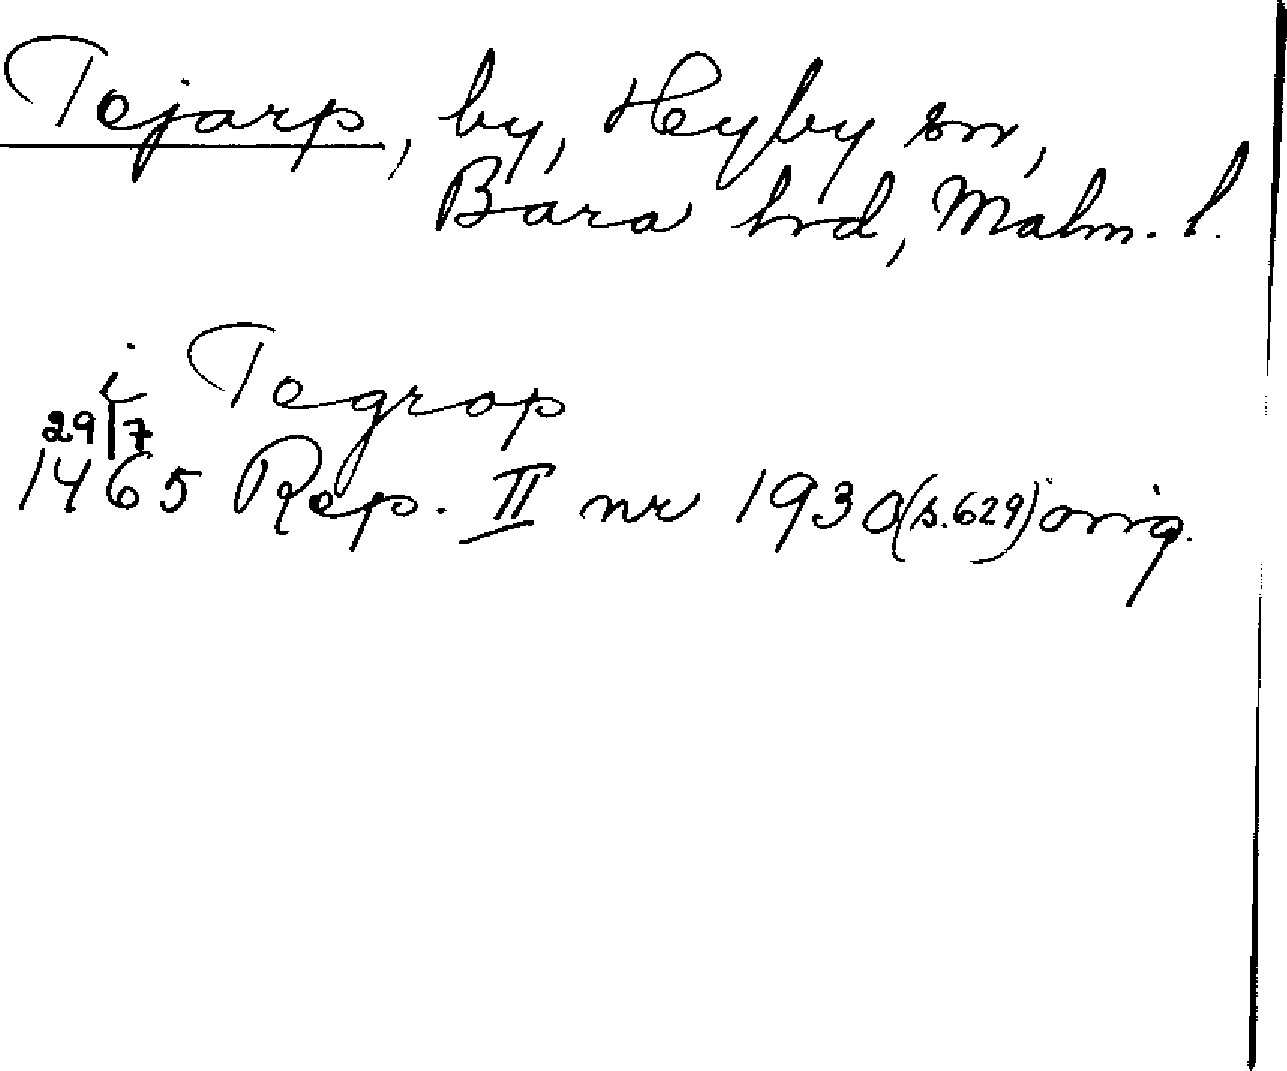 Tejarp, by, Hyby sn,
Bara hrd, Malm. l.
i Tegrop
29/7
1465 Rep. II nr 1930 (s. 629) orig.